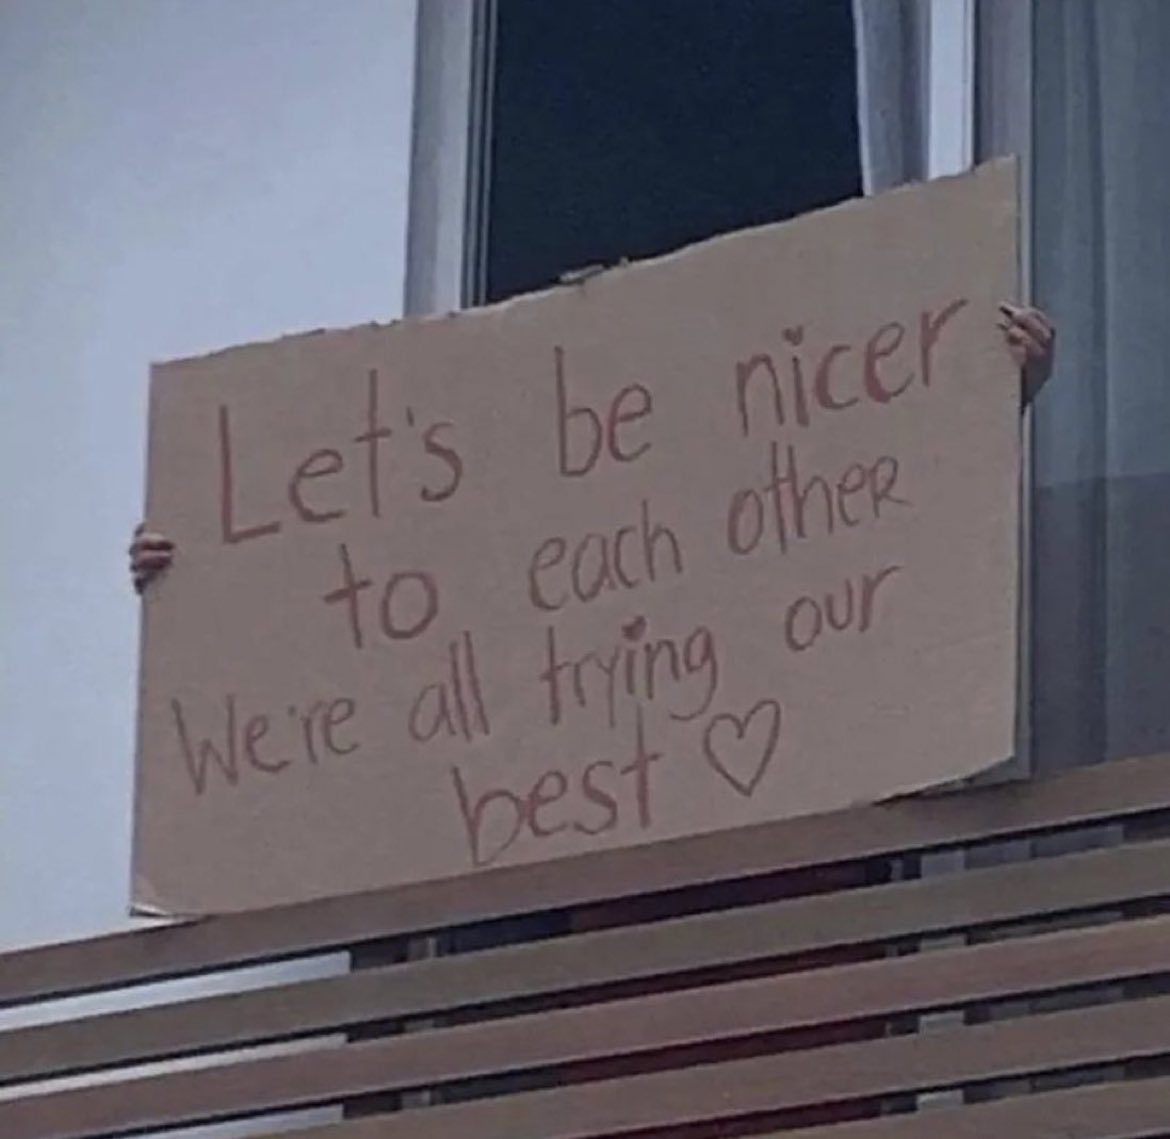 Let's be nicer
to each other
We're all trying our
best ♡